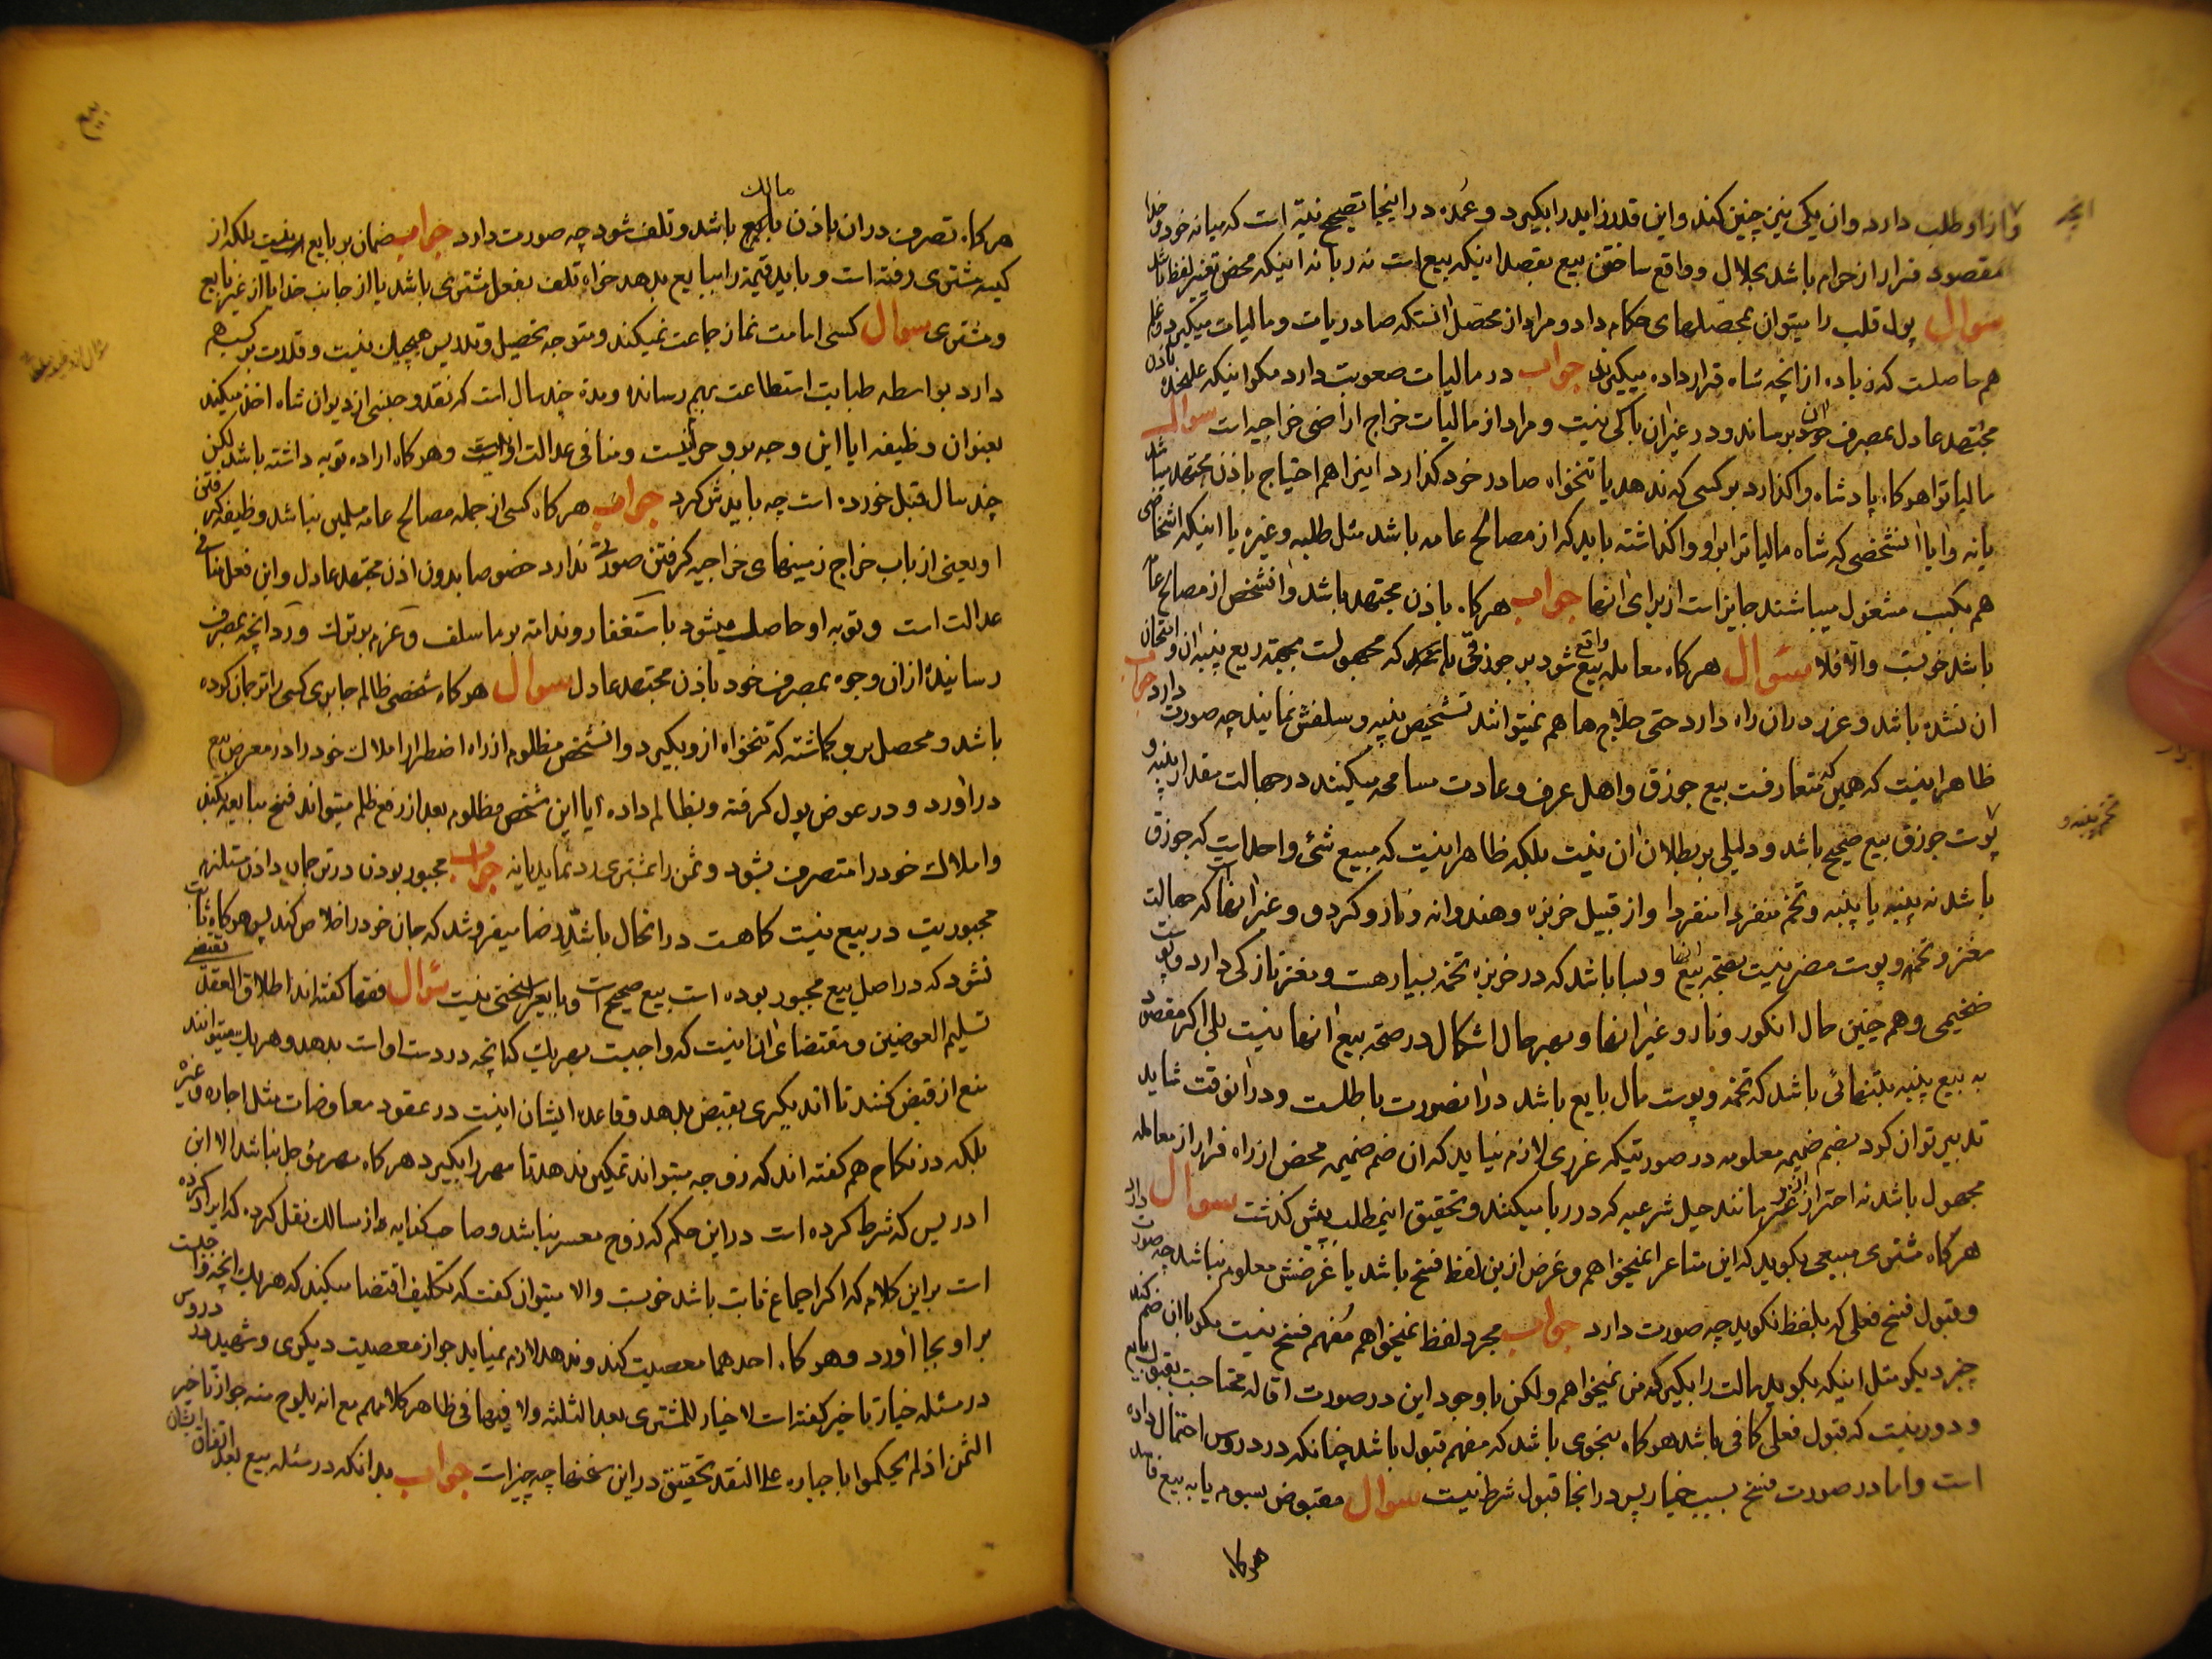 و از او طلب دارد و ان یکی نیز چنین کند و این قدر زاید را بگیرد و عمده در اینجا تصحیح نیة است که میانه خود و خدا
مقصود فرار از حرام باشد بحلال و واقع ساختن بیع بقصد اینکه بیع است نه ربا نه اینکه محض تغییر لفظ باشد
سوال پول قلب را میتوان بمحصلهای حکام داد و مراد از محصل انستکه صادریات و مالیات میگیرد و غله
هم حاصلست که زیاده از انچه شاه قرار داده میگیرند جواب در مالیات صعوبت دارد مگر اینکه باذن
مجتهد عادل بمصرف ان برساند و در غیر ان باکی نیست و مراد از مالیات خراج اراضی خراجیه است سوال
مالیات را هرکاه پادشاه واگذارد بر کسی که ندهد یا تنخواه صادر خود گذارد اینرا هم احتیاج باذن مجتهد میباشد
یا نه و ایا انشخصی که شاه مالیات را بر او واگذاشته باید که از مصالح عامه باشد مثل طلبه و غیره یا اینکه اشخاصی
هم بکسب مشغول میباشند جایز است از برای انها جواب هرکاه باذن مجتهد باشد و انشخص از مصالح عامه
باشد خوبست والا فلا سئوال هرکاه معامله بیع واقع شود بر جوزقی که مجهولست بجهة ریع پنبه ان و امتحان
ان نشده باشد و غرر در ان راه دارد حتی حلاج ها هم نمیتوانند تشخیص پنبه و سلفش نمایند چه صورت دارد جواب
ظاهر اینست که همین که متعارفست بیع جوزق و اهل عرف و عادت مسامحه میکنند در جهالت مقدار پنبه و
پوست جوزق بیع صحیح باشد و دلیلی بر بطلان ان نیست بلکه ظاهر اینست که مبیع شئ واحد است که جوزق
باشد نه پنبه یا پنبه و تخم منفردا منفردا و از قبیل خربزه و هندوانه و نار و کردو و غیر انها است که جهالت
مغز و تخمه و پوست مضر نیست بصحة بیع انها و بسا باشد که در خربزه تخمه بسیار هست و مغز نازکی دارد و پوست
ضخیمی و هم چنین حال انکور و نار و غیر انها و بهر حال اشکال در صحة بیع انها نیست بلی اکر مقصود
به بیع پنبه بتنهائی باشد که تخمه و پوست مال بایع باشد در انصورت باطلست و در انوقت شاید
تدبیر توان کرد بضم ضمیمه معلومه در صورتیکه غرری لازم نیاید که ان ضم ضمیمه محض از راه فرار از معامله
مجهول باشد نه احتراز از غرر مانند حیل شرعیه که در ربا میکنند و تحقیق اینمطلب پیش کذشت سوال
هرکاه مشتری مبیعی بگوید که این متاعرا نمیخواهم و غرض از این لفظ فسخ باشد یا غرضش معلوم نباشد چه صورت دارد
و قبول فسخ فعلی که بلفظ نکوید چه صورت دارد جواب مجرد لفظ نمیخواهم مفهم فسخ نیست مگر با ان ضم کند
چیز دیکر مثل اینکه بکوید مالت را بگیر که من نمیخواهم ولکن با وجود این در صورت اقاله محتاجست بقبول بایع
و دور نیست که قبول فعلی کافی باشد هرکاه بنحوی باشد که مفهم قبول باشد چنانکه در دروس احتمال داده
است و اما در صورت فسخ بسبب خیار پس در انجا قبول شرط نیست سوال مقبوض بسوم یا به بیع فاسد
هرکاه
بیع
هرکاه تصرف در ان باذن مالک باشد و تلف شود چه صورت دارد جواب ضمان بر بایع نیست بلکه از
کیسه مشتری رفته است و باید قیمة را ببایع بدهد خواه تلف بفعل مشتری باشد یا از جانب خدا یا از غیر بایع
و مشتری سوال کسی امامت نماز جماعت نمیکند و متوجه تحصیل و تدریس هیچیک نیست و قدرت بر کسب هم
دارد بواسطه طبابت استطاعت بهم رسانده و مدة چند سال است که نقد و جنسی از دیوان شاه اخذ میکند
بعنوان وظیفه ایا این وجه بر و حرام نیست و منافی عدالت او نیست و هرکاه اراده توبه داشته باشد لیکن
چند سال قبل خورده است چه بایدش کرد جواب هرکاه کسی از جمله مصالح عامه مسلمین نباشد وظیفه گرفتن
او یعنی از باب خراج زمینهای خراجیه کرفتن صورتی ندارد خصوصا بدون اذن مجتهد عادل و این فعل منافی
عدالت است و توبه او حاصل میشود باستغفار و ندامة بر ما سلف و عزم بر ترک و رد انچه بمصرف
رسانیده از ان وجوه بمصرف خود باذن مجتهد عادل سوال هرکاه شخصی ظالم جابری کسی را ترجمان کرده
باشد و محصل بر و گماشته که تنخواه از و بگیرد و انشخص مظلوم از راه اضطرار املاک خود را در معرض بیع
در اورد و در عوض پول کرفته و بظالم داده ایا این شخص مظلوم بعد از رفع ظلم میتواند فسخ مبایعه بکند
و املاک خود را متصرف بشود و ثمن را بمشتری رد نماید یا نه جواب مجبور بودن در ترجمان دادن مستلزم
مجبوریت در بیع نیست کاهست در انحال باشد برضا میفروشد که جان خود را خلاص کند پس هرکاه ثابت
نشود که در اصل بیع مجبور بوده است بیع صحیح است و بایع را تسلطی نیست سئوال فقها کفته اند اطلاق العقد یقتضی
تسلیم العوضین و مقتضای ان اینست که واجبست بر هر یک که انچه در دست اوست بدهد و هر یک میتوانند
منع از قبض کنند تا اندیکری بقبض بدهد و قاعده ایشان اینست در عقود معاوضات مثل اجاره و غیره
بلکه در نکاح هم کفته اند که زوجه میتواند تمکین ندهد تا مهر را بگیرد هرکاه مهر مؤجل نباشد الا ابن
ادریس که شرط کرده است در این حکم که زوج معسر نباشد و صاحب کفایه از مسالک نقل کرده که ایراد کرده
است بر این کلام که اکر اجماع ثابت باشد خوبست والا میتوان کفت که تکلیف اقتضا میکند که هر یک انچه واجبست
بر او بجا آورد و هرکاه احدهما معصیت کند و ندهد لازم نمیاید جواز معصیت دیکری و شهید در دروس
در مسئله خیار تاخیر کفته است لا خیار للمشتری بعد الثلثه ولا فیها فی ظاهر کلامهم مع انه یلوح منه جواز تاخیر
الثمن اذ لم یحکموا باجباره علی النقد تحقیق در این سخنها چه چیز است جواب بدانکه در مسئله بیع بعد اتفاق ایشان